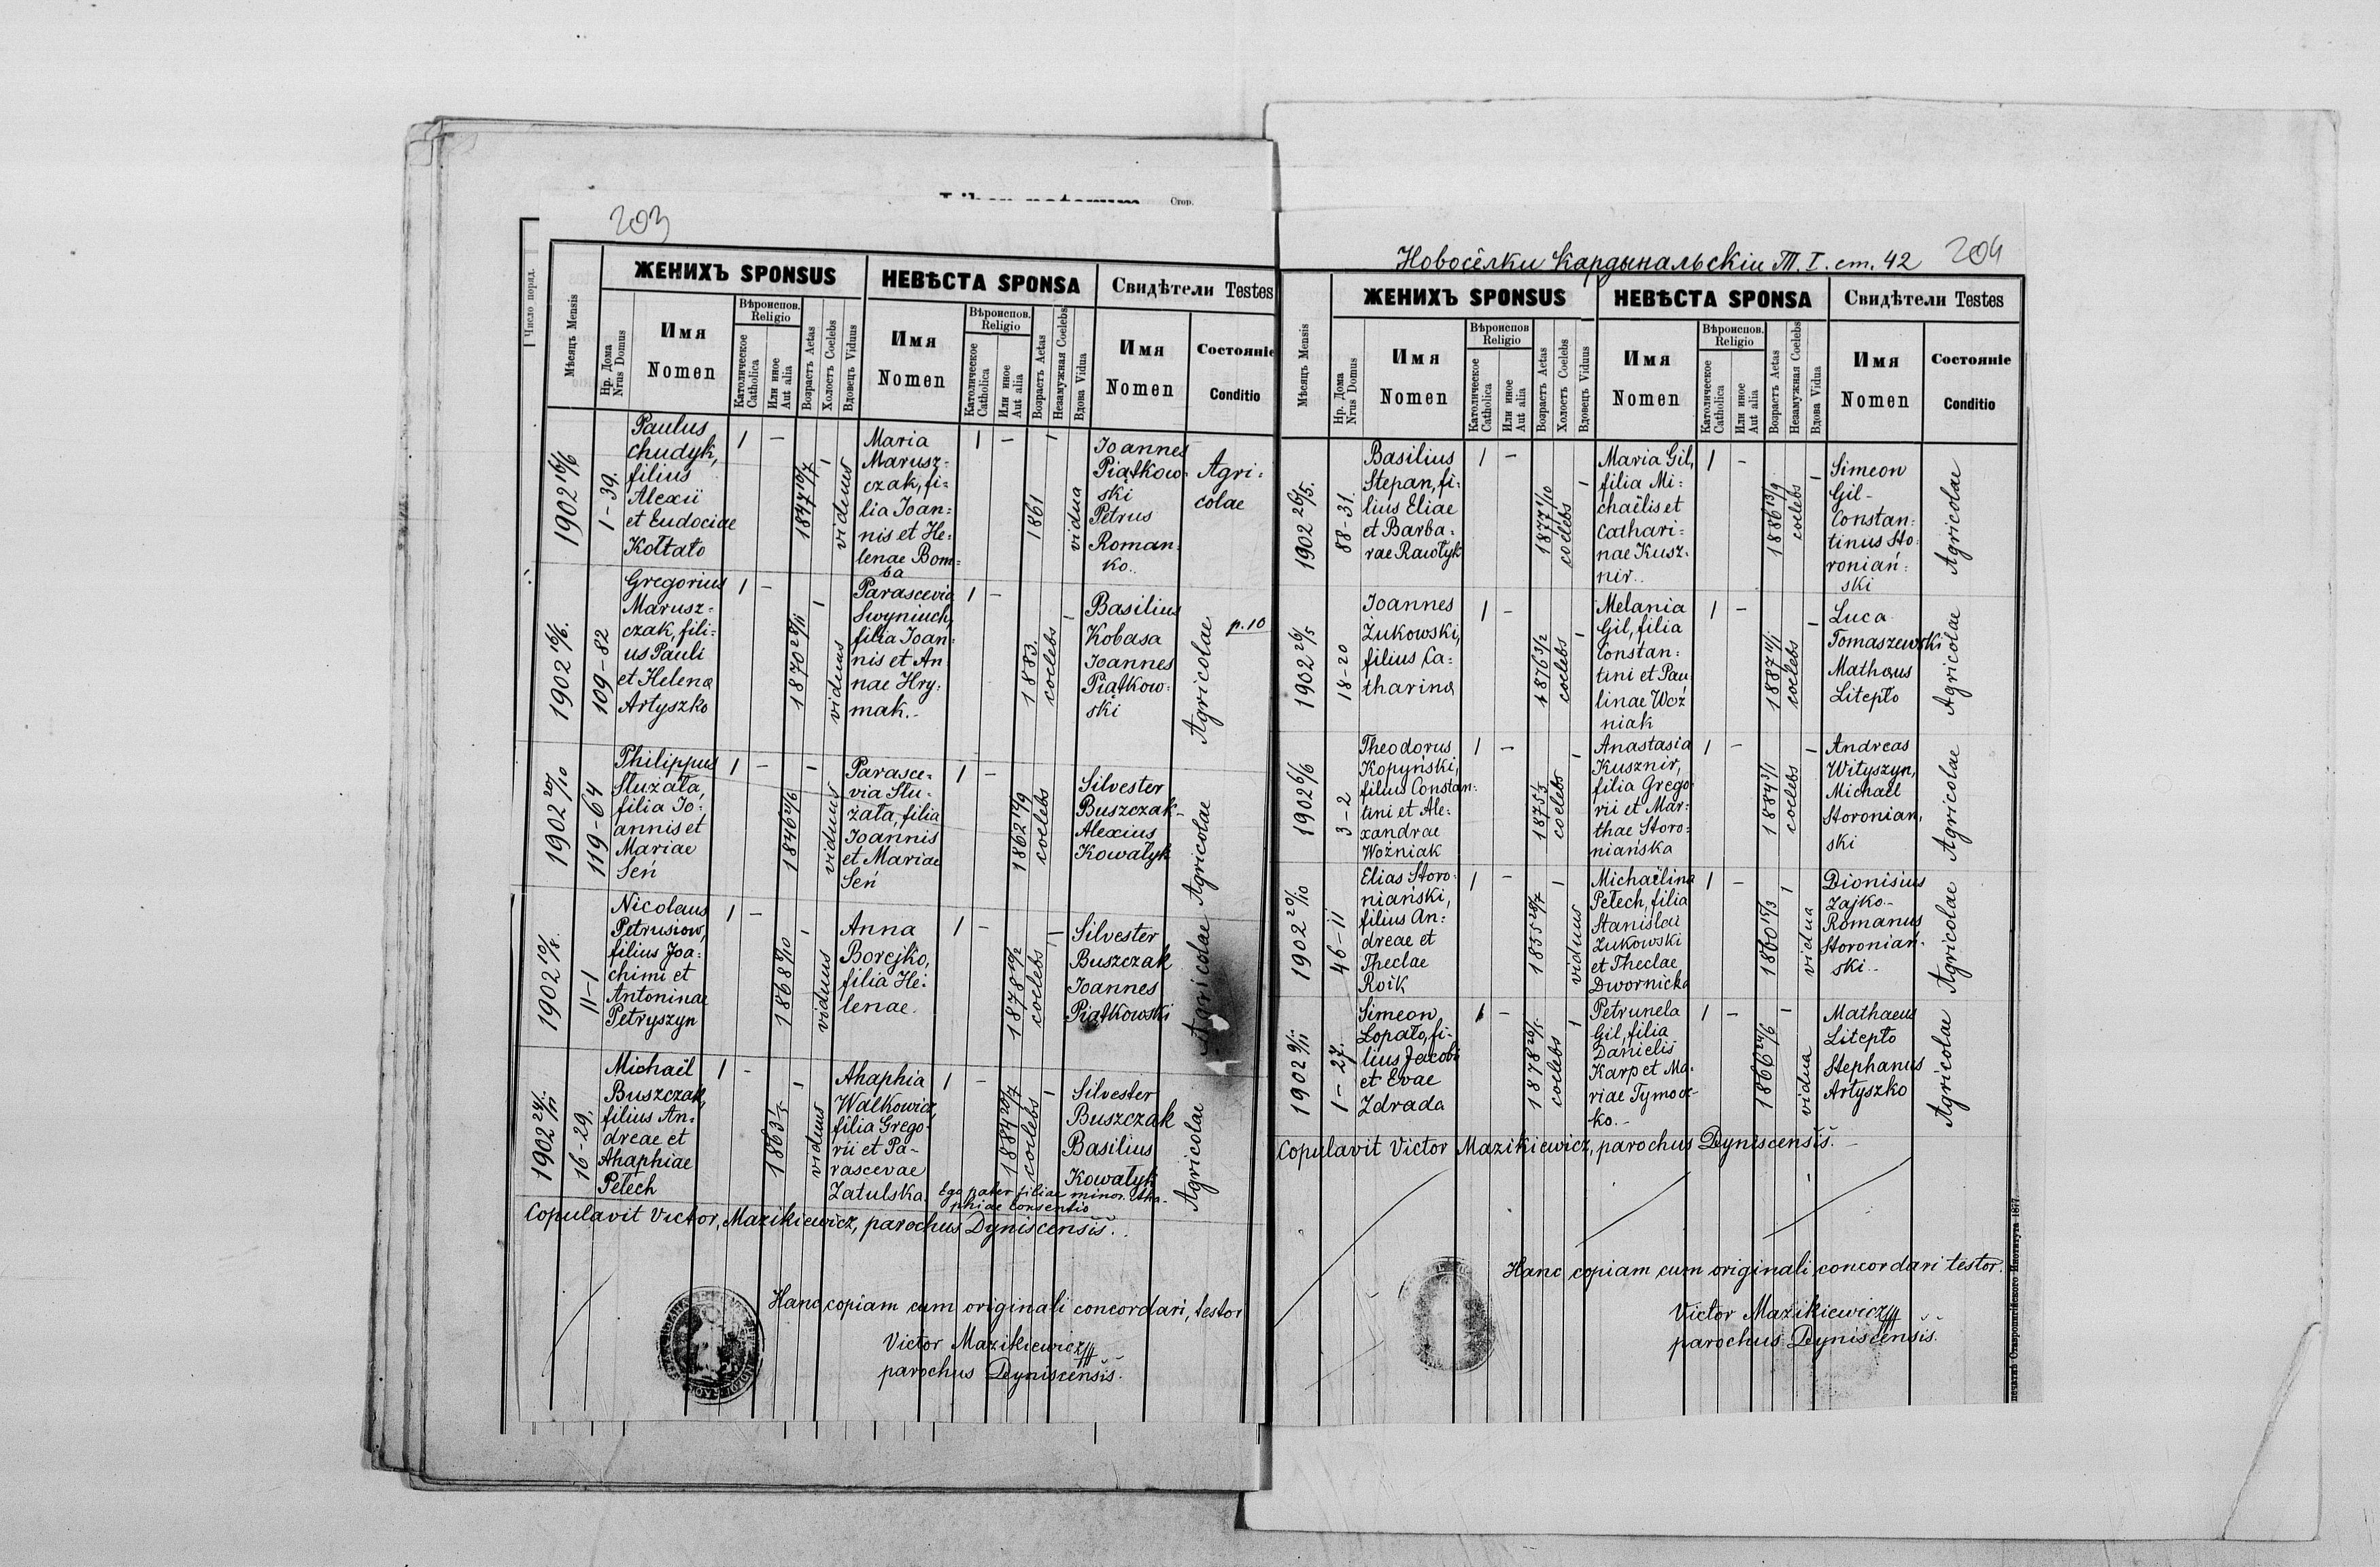 203
Стор.
Число поряд.
Мѣсяцъ Mensis
Нр. Дома
Nrus Domus
ЖЕНИХЪ SPONSUS
НЕВѢСТА SPONSA
Свидѣтели Testes
Имя
Nomen
Вѣроиспов.
Religio
Католическое
Catholica
Или иное
Aut alia
Возрастъ Aetas
Холостъ Coelebs
Вдовецъ Viduus
Имя
Nomen
Вѣроиспов.
Religio
Католическое
Catholica
Или иное
Aut alia
Возрастъ Aetas
Незамужная Coelebs
Вдова Vidua
Имя
Nomen
Состояніе
Conditio
1902 16/6
1-39.
Paulus
Chudyk,
filius
Alexii
et Eudociae
Kołtało
1 -
1847 10/7
1
viduus
Maria
Marusz-
czak, fi-
lia Joan-
nis et He-
lenae Bom-
ba
1 -
1861
1
vidua
Joannes
Piątkow-
ski
Petrus
Roman-
ko..
Agri-
colae
1902 16/6.
109-82
Gregorius
Marusz-
czak, fili-
us Pauli
et Helena
Artyszko
1 -
1870 28/11
1
viduus
Parascevia
Swyniuch,
filia Joan-
nis et An
nae Hry-
mak.-
1 -
1883.
coelebs
1
Basilius
Kobasa
Joannes
Piątkow-
ski
Agricolae
p.10
1902 20/10
119-64
Philippus
Służała,
filia Jo-
annis et
Mariae
Seń
1 -
1846 2/6
1
viduus
Parasce-
via Słu-
żała, filia
Joannis
et Mariae
Seń
1 -
1862 14/9
coelebs
Silvester
Buszczak-
Alexius
Kowalyk
Agricolae
1902 10/8.
11-1
Nicolaus
Petrusiow,
filius Joa-
chimi et
Antoninae
Petryszyn
1 -
1868 8/10
1
viduus
Anna
Borejko,
filia He-
lenae.
1 -
1878 19/2
coelebs
1
Silvester
Buszczak
Joannes
Piątkowski
Agricolae
1902 24/11.
16-29.
Michaël
Buszczak,
filius An-
dreae et
Ahaphiae
Pełech
1 -
1863
1
viduus
Ahaphia
Walkowicz,
filia Grego-
rii et Pa-
rascevae
Zatulska.
1 -
1884 20/7
coelebs
1
Silvester
Buszczak
Basilius
Kowalyk
Agricolae
Ego pater filiae minor. Aha-
phiae consentio
Copulavit Victor, Mazikiewicz, parochus Dyniscensis..
Hanc copiam cum originali concordari, testor
Victor Mazikiewicz
parochus Dyniscensis.
Новосёлки Кардынальскіи Т. I. ст. 42
204
Мѣсяцъ Mensis
Нр. Дома
Nrus Domus
ЖЕНИХЪ SPONSUS
НЕВѢСТА SPONSA
Свидѣтели Testes
Имя
Nomen
Вѣроиспов
Religio
Католическое
Catholica
Или иное
Aut alia
Возрастъ Aetas
Холостъ Coelebs
Вдовецъ Viduus
Имя
Nomen
Вѣроиспов.
Religio
Католическое
Catholica
Или иное
Aut alia
Возрастъ Aetas
Незамужная Coelebs
Вдова Vidua
Имя
Nomen
Состояніе
Conditio
1902 26/5.
88-31.
Basilius
Stepan, fi-
lius Eliae
et Barba-
rae Rawłyk
1 -
1877 1/10
coelebs
1
Maria Gil,
filia Mi-
chaëlis et
Cathari-
nae Kusz-
nir..
1 -
1886 13/9
coelebs
1
Simeon
Gil-
Constan-
tinus Sto-
roniań-
ski
Agricolae
1902 26/5
18-20
Joannes
Żukowski,
filius Ca-
tharina
1 -
1876 3/2
coelebs
1
Melania
Gil, filia
Constan-
tini et Pau
linae Woź
niak
1 -
1887 11/1
coelebs
1
Luca
Tomaszewski
Mathaus
Litepło
Agricolae
1902 6/6
3-2
Theodorus
Kopyński,
filius Constan-
tini et Ale-
xandrae
Woźniak
1 -
1875
coelebs
1
Anastasia
Kusznir,
filia Grego
rii et Mar-
thae Storo-
niańska
1 -
1884 3/1
coelebs
1
Andreas
Wityszyn,
Michaël
Storonian,
ski
Agricolae
1902 20/10
46-11
Elias Storo-
niański,
filius An-
dreae et
Theclae
Roik
1 -
1855 28/7
1
viduus
Michaëlina
Pełech, filia
Stanislai
Żukowski
et Theclae
Dwornicka
1 -
1860 15/3
1
vidua
Dionisius
Zajko.-
Romanus
Storoniań-
ski..
Agricolae
1902 9/11
1-27.
Simeon
Łopato, fi-
lius Jacobi
et Evae
Zdrada
1 -
1878 26/1.
coelebs
1
Petrunela
Gil, filia
Danielis
Karp et Ma-
riae Tymocz-
ko.-
1 -
1866 24/6
1
vidua
Mathaeus
Litepło
Stephanus
Artyszko
Agricolae
Copulavit Victor Mazikiewicz, parochus Dyniscensis.-
Hanc copiam cum originali concordari testor.
Victor Mazikiewicz
parochus Dyniscensis.
печатъ Ставропигійского Института 1877